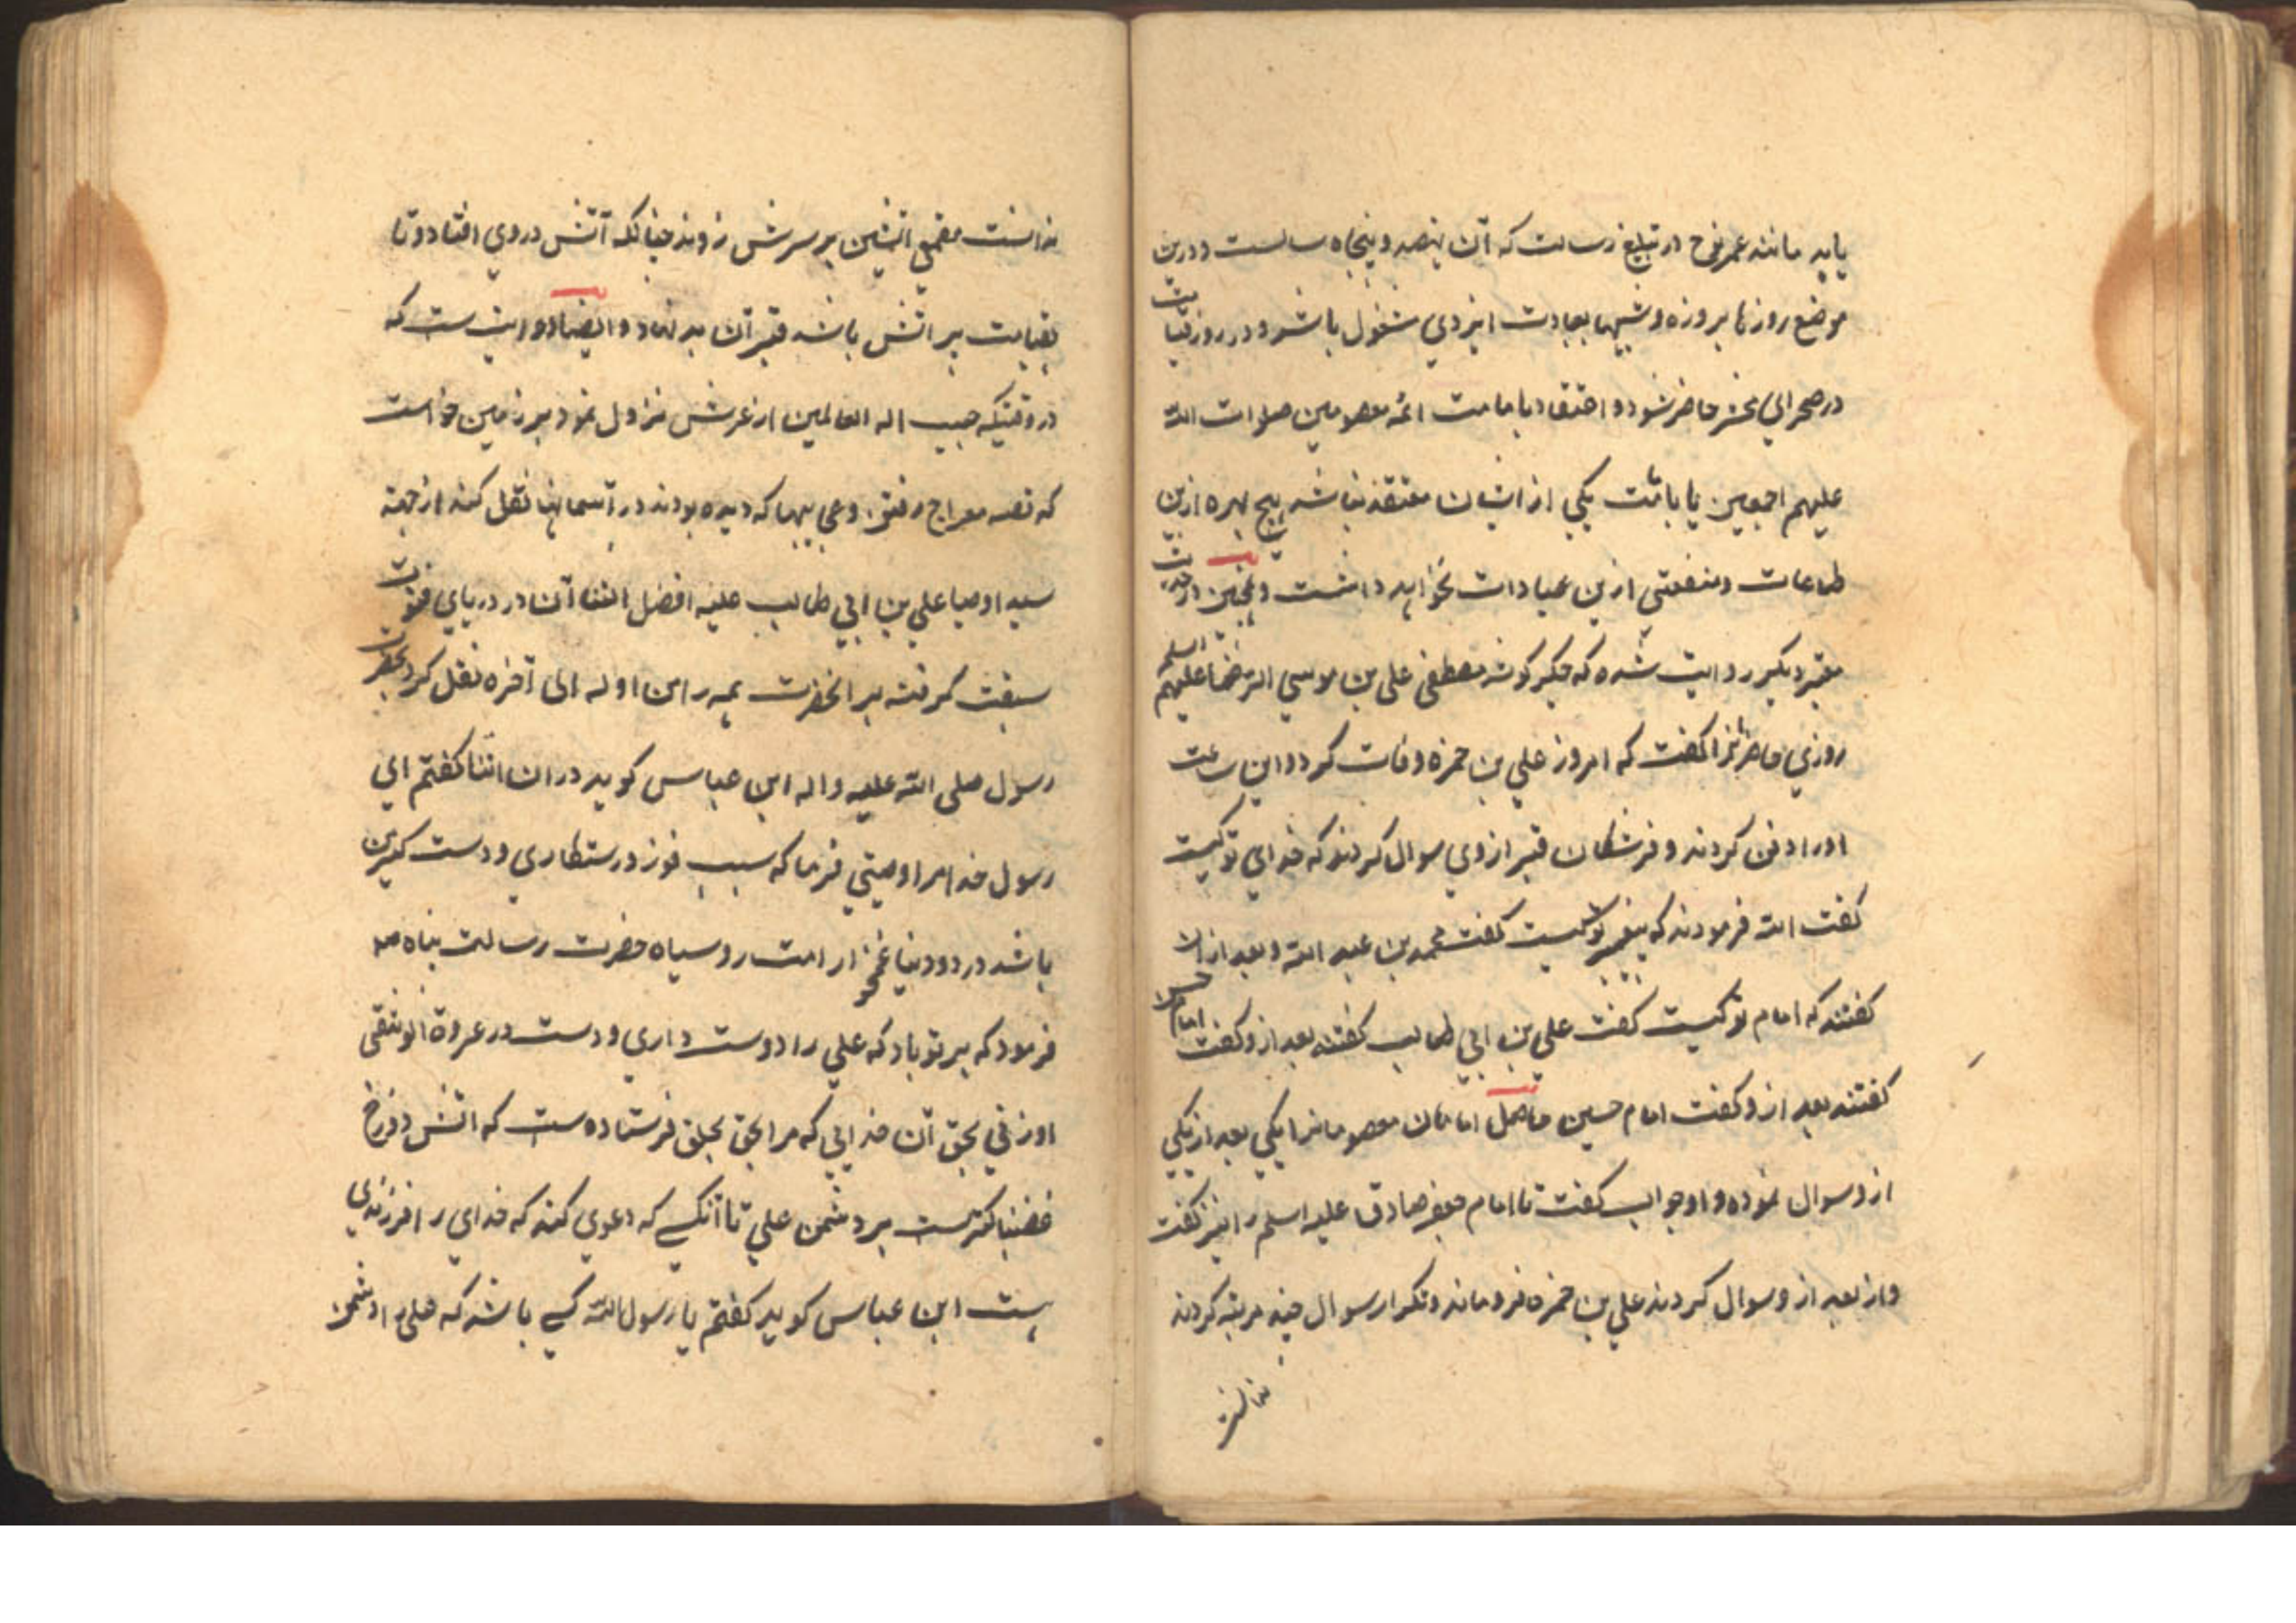 یابد مانند عمر نوح در تبلیغ رسالت که آن نهصد و پنجاه سالست و درین
موضع روزها بروزه و شبها بعبادت ایزدی مشغول باشد و در روز قیامت
در صحرای محشر حاضر شود و اعتقاد بامامت ائمه معصومین صلوات الله
علیهم اجمعین یا بامامت یکی از ایشان معتقد نباشد هیچ بهره ازین
طاعات و منفعتی ازین عبادات نخواهد داشت و همچنین در حدیث
معتبر دیگر روایت شده که جگر گوشه مصطفی علی بن موسی الرضا علیهم السلم
روزی حاضرانرا گفت که امروز علی بن حمزه وفات کرد و این ساعت
اورا دفن کردند و فرشتگان قبر از وی سوال کردند که خدای تو کیست
گفت الله فرمودند که پیغمبر تو کیست گفت محمد بن عبد الله و بعد از ان
گفتند که امام تو کیست گفت علی بن ابی طالب گفتند بعد ازو گفت امام حسن
گفتند بعد ازو گفت امام حسین حاصل امامان معصومانرا یکی بعد از یکی
ازو سوال نموده و او جواب گفت تا امام جعفر صادق علیه اسلم را نیز گفت
و از بعد ازو سوال کردند علی بن حمزه فرو ماند و تکرار سوال چند مرتبه کردند
ندانست
ندانست مقمعی اتشین بر سرش زوند چنانکه آتش در وی افتاد و تا
بقیامت پر اتش باشد قبر آن بد نهاد و ایضا روایت ست که
در وقتیکه حبیب اله العالمین از عرش نزول نمود بر زمین خواست
که قصه معراج رفتن و عجایبها که دیده بودند در آسمانها نقل کند از جهة
سید اوصیا علی بن ابی طالب علیه افضل الثنا آن در دریای فتوت
سبقت گرفته بر انحضرت همه را من اوله الی آخره نقل کرد بحضرت
رسول صلی الله علیه و اله ابن عباس گوید در ان اثنا گفتم ای
رسول خدا مرا وصیتی فرما که سبب فوز و رستطاری و دست گیرین
باشد در دو دنیا غمخوار امت رو سیاه حضرت رسالت پناه صه
فرمود که بر تو باد که علی را دوست داری و دست در عروة الوثقی
او زنی بحق آن خدایی که مرا بحق بخلق فرستاده ست که اتش دوزخ
غضبناکترست بر دشمن علی تا آنکسی که دعوی کند که خدای را فرزندی
هست ابن عباس گوید گفتم یا رسول الله کسی باشد که علی را دشمن